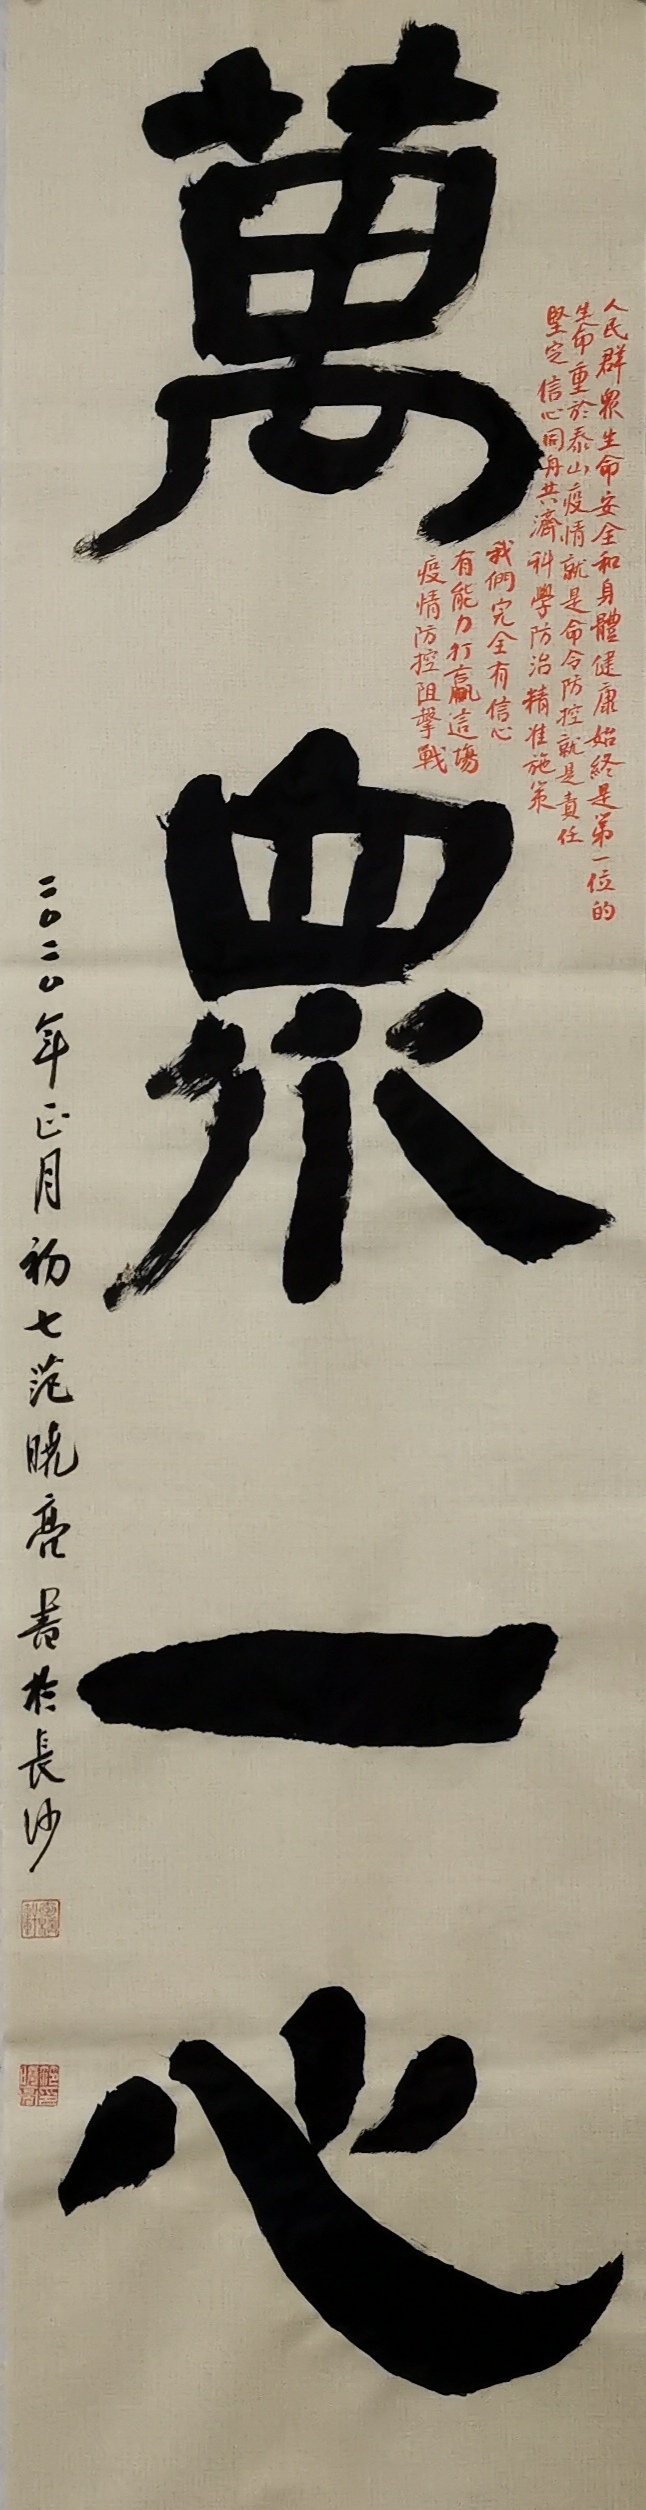 萬眾一心
人民群眾生命安全和身體健康始終是第一位的
生命重於泰山疫情就是命令防控就是責任
堅定信心同舟共濟科學防治精准施策
我們完全有信心
有能力打贏這場
疫情防控阻擊戰
二〇二〇年正月初七范曉亮書於長沙